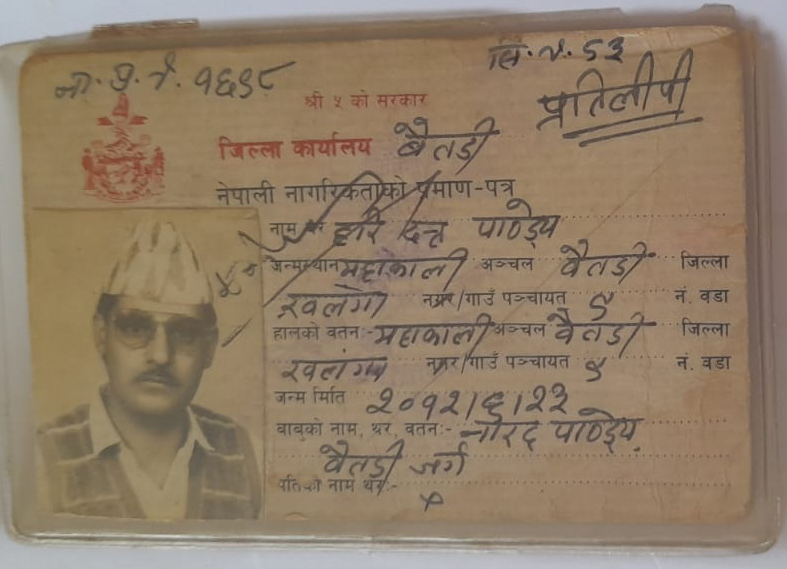 ना. प्र. नं. १६९८
सि. नं. ६३
प्रतिलीपी
श्री ५ को सरकार
जिल्ला कार्यालय बैतडी
नेपाली नागरिकताको प्रमाण-पत्र
नाम थर हरि दत्त पाण्डेय
जन्मस्थान महाकाली अञ्चल बैतडी जिल्ला
खलंगा नगर/गाउँ पञ्चायत ९ नं. वडा
हालको वतन:- महाकाली अञ्चल बैतडी जिल्ला
खलंगा नगर/गाउँ पञ्चायत ९ नं. वडा
जन्म मिति २०१२।६।२३
बाबुको नाम, थर, वतन:- नारद पाण्डेय
बैतडी
पतिको नाम थर:- ×